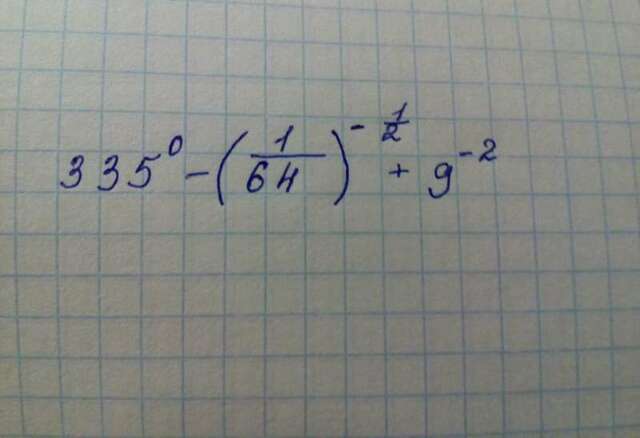 335⁰ - (1/64)^(-1/2) + 9⁻²